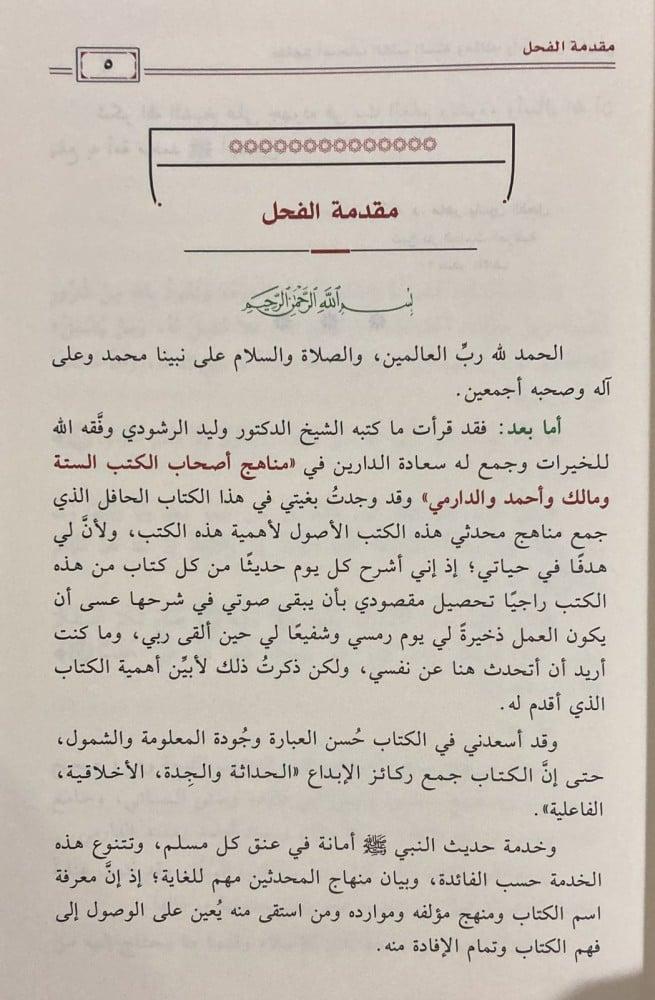 مقدمة الفحل
٥
مقدمة الفحل
بسم الله الرحمن الرحيم
الحمد لله ربِّ العالمين، والصلاة والسلام على نبينا محمد وعلى
آله وصحبه أجمعين.
أما بعد: فقد قرأت ما كتبه الشيخ الدكتور وليد الرشودي وفَّقه الله
للخيرات وجمع له سعادة الدارين في «مناهج أصحاب الكتب الستة
ومالك وأحمد والدارمي» وقد وجدتُ بغيتي في هذا الكتاب الحافل الذي
جمع مناهج محدثي هذه الكتب الأصول لأهمية هذه الكتب، ولأنَّ لي
هدفًا في حياتي؛ إذ إني أشرح كل يوم حديثًا من كل كتاب من هذه
الكتب راجيًا تحصيل مقصودي بأن يبقى صوتي في شرحها عسى أن
يكون العمل ذخيرةً لي يوم رمسي وشفيعًا لي حين ألقى ربي، وما كنت
أريد أن أتحدث هنا عن نفسي، ولكن ذكرتُ ذلك لأبيِّن أهمية الكتاب
الذي أقدم له.
وقد أسعدني في الكتاب حُسن العبارة وجُودة المعلومة والشمول،
حتى إنَّ الكتاب جمع ركائز الإبداع «الحداثة والجِدة، الأخلاقية،
الفاعلية».
وخدمة حديث النبي ﷺ أمانة في عنق كل مسلم، وتتنوع هذه
الخدمة حسب الفائدة، وبيان منهاج المحدثين مهم للغاية؛ إذ إنَّ معرفة
اسم الكتاب ومنهج مؤلفه وموارده ومن استقى منه يُعين على الوصول إلى
فهم الكتاب وتمام الإفادة منه.